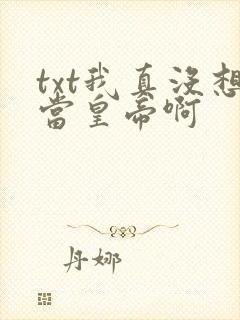 txt我真没想
当皇帝啊
丹娜